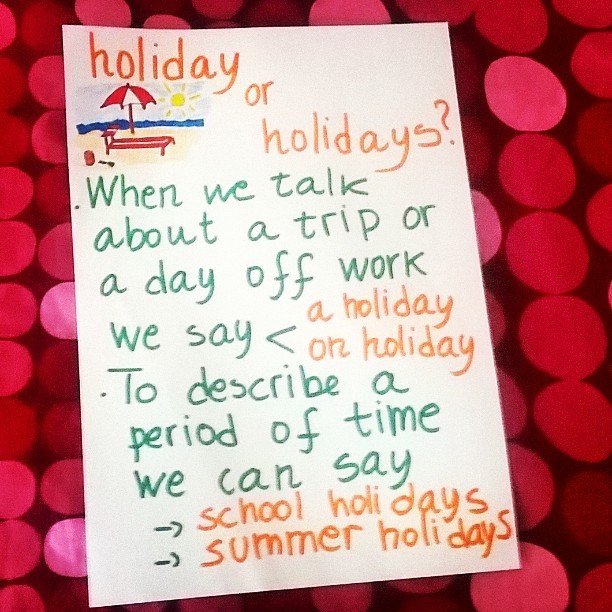 holiday
or
holidays?
. When we talk
about a trip or
a day off work
we say < a holiday
on holiday
. To describe a
period of time
we can say
→ school holidays
→ summer holidays